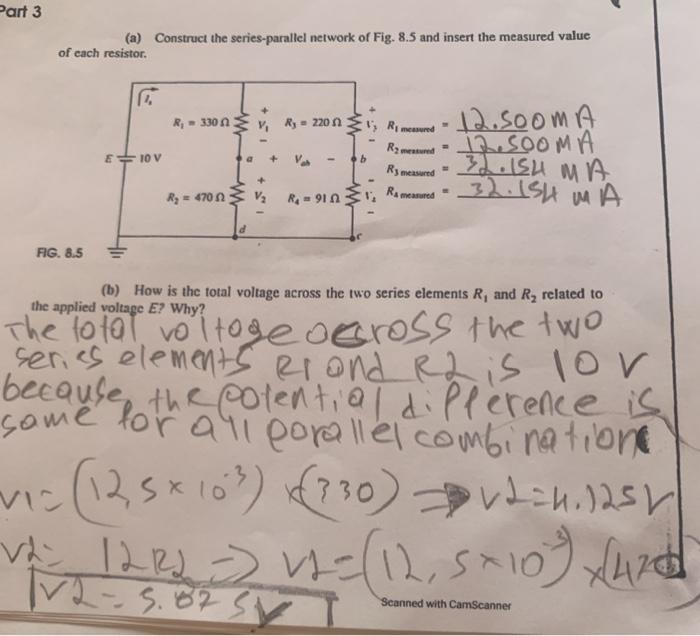 Part 3
(a) Construct the series-parallel network of Fig. 8.5 and insert the measured value
of each resistor.
R₁ = 330 Ω V₁ R₃ = 220 Ω V₃ R₁ measured = 12.500 mA
R₂ measured = 12.500 MA
E 10 V a + Vab - b
R₃ measured = 32.154 MA
R₂ = 470 Ω V₂ R₄ = 91 Ω R₄ measured = 32.154 mA
d c
FIG. 8.5
(b) How is the total voltage across the two series elements R₁ and R₂ related to
the applied voltage E? Why?
The total voltage across the two
series elements R1 and R2 is 10 v
because, the potential difference is
same for all parallel combination
V1 = (12,5 × 10⁻³) × (330) ⇒ V1 = 4.125V
V2 = I2R2 ⇒ V2 = (12,5×10⁻³) × (470)
V2 = 5.875V
Scanned with CamScanner